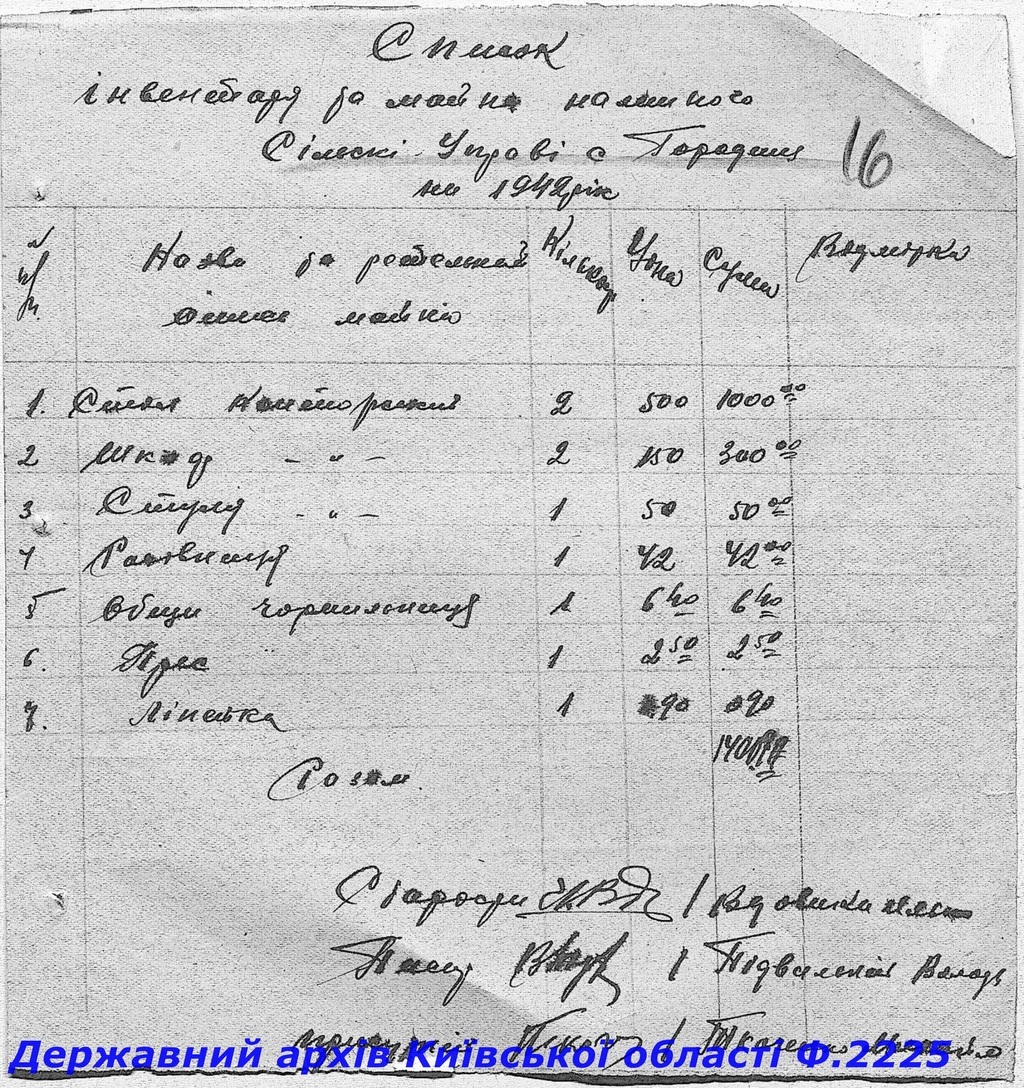 Список
інвентаря та майна наличного
Сільскі Управі с Городище
на 1942 рік
16
№ п/п. Назва та детельний опис майна Кількість Ціна Сума Відмітка
1. Стол Конторський 2 500 1000 00
2 Шкаф - " - 2 150 300 00
3 Стуля - " - 1 50 50 00
4 Рахівниця 1 42 42 00
5 Общи чорнильниця 1 6 40 6 40
6. Прес 1 2 50 2 50
7. Лінейка 1 90 0 90
Разом
Староста /
Писар / Підвальний
Державний архів Київської області Ф.2225